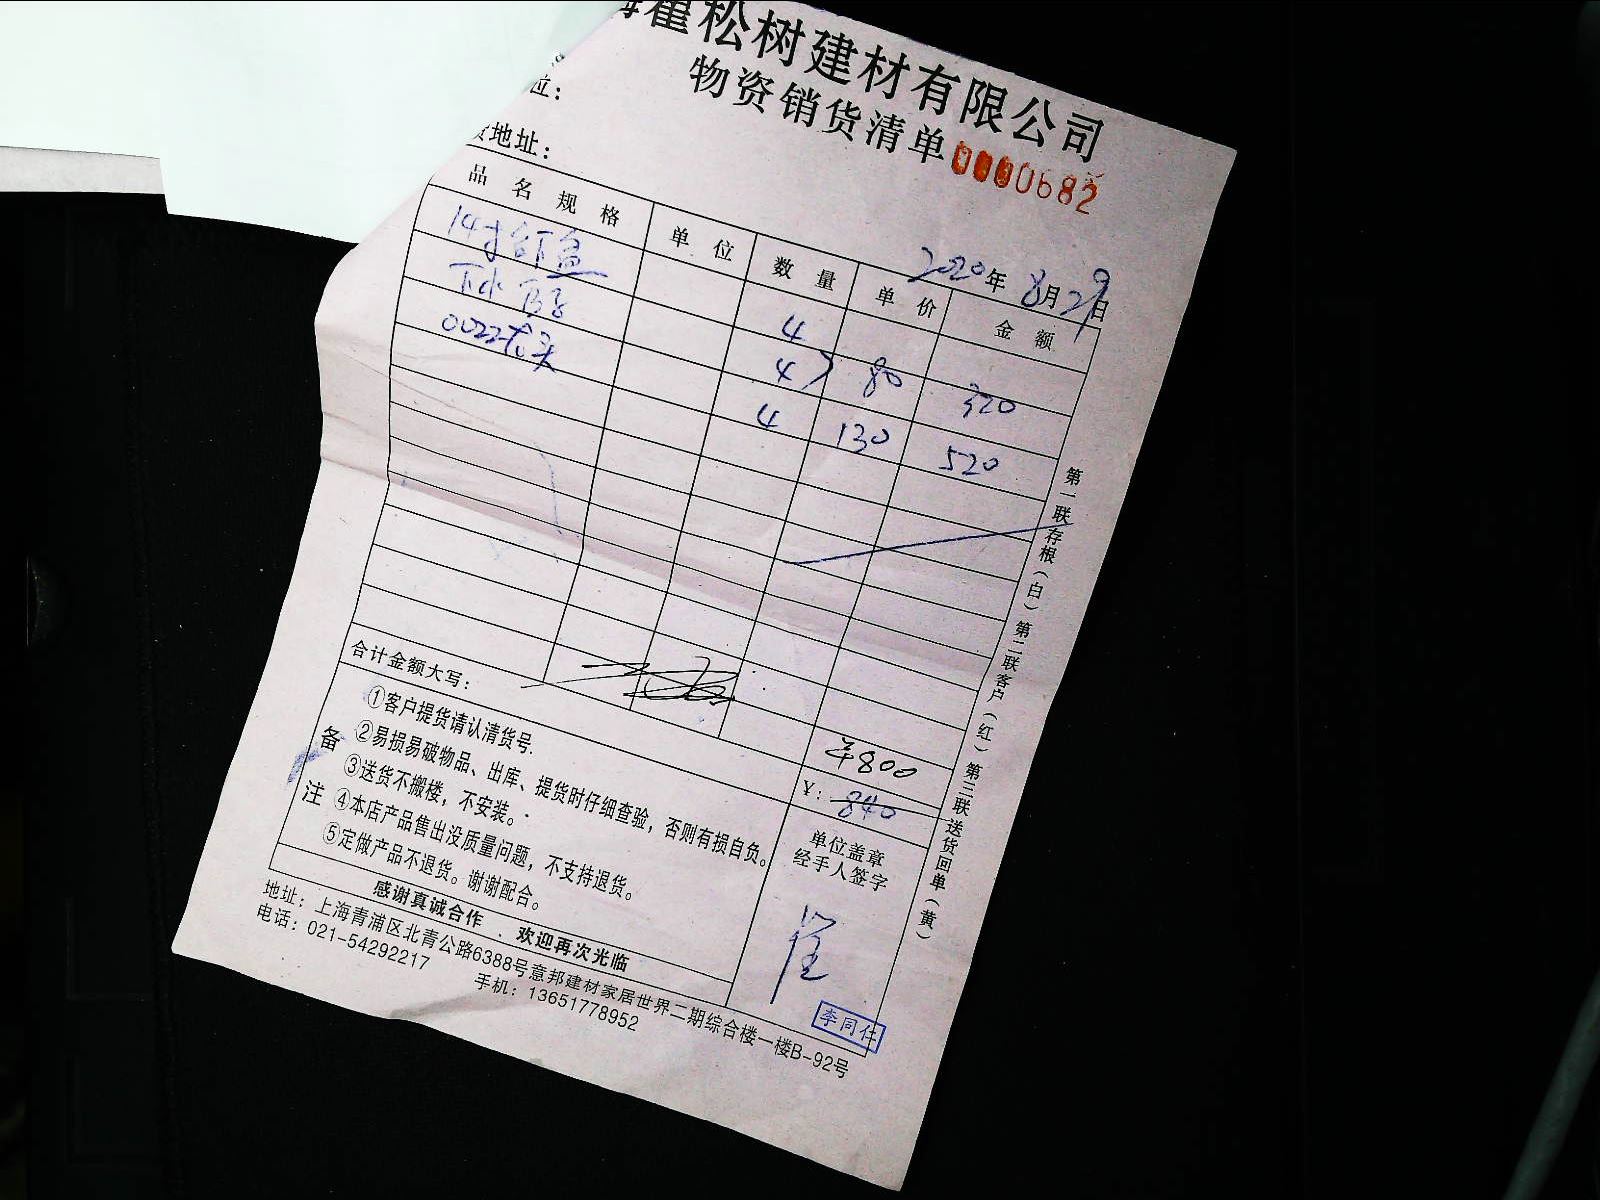 崔松树建材有限公司
物资销货清单 0000682
位：
货地址：
2020年8月29日
品名规格 单位 数量 单价 金额
14寸台下盆 4
下水 4 80 320
0022龙头 4 130 520
合计金额大写： ¥800
¥：840
备注
①客户提货请认清货号.
②易损易破物品、出库、提货时仔细查验，否则有损自负。
③送货不搬楼，不安装。
④本店产品售出没质量问题，不支持退货。
⑤定做产品不退货。谢谢配合。
单位盖章
经手人签字
崔
李同仁
感谢真诚合作 . 欢迎再次光临
地址：上海青浦区北青公路6388号意邦建材家居世界二期综合楼一楼B-92号
电话：021-54292217 手机：13651778952
第一联存根（白）第二联客户（红）第三联送货回单（黄）